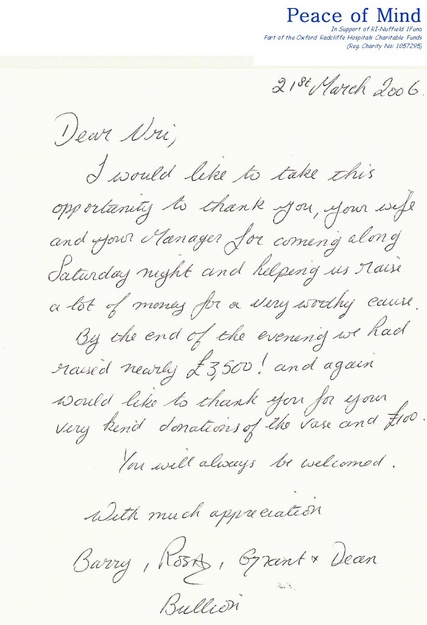 Peace of Mind
In Support of RI-Nuffield IFund
Part of the Oxford Radcliffe Hospitals Charitable Funds
(Reg. Charity No: 1057295)
21st March 2006.
Dear Uri,
I would like to take this
opportunity to thank you, your wife
and your Manager for coming along
Saturday night and helping us raise
a lot of money for a very worthy cause.
By the end of the evening we had
raised nearly £3,500! and again
would like to thank you for your
very kind donations of the vase and £100.
You will always be welcomed.
With much appreciation
Barry, Rosa, Grant & Dean
Bullion